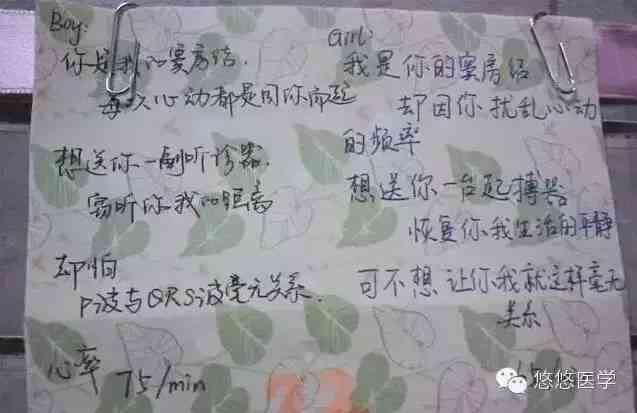 Boy:
你是我的窦房结.
每次心动都是因你而起
想送你一副听诊器.
窃听你我的距离
却怕
P波与QRS波毫无关系.
心率 75/min
Girl:
我是你的窦房结
却因你扰乱心动
的频率
想送你一台起搏器
恢复你我生活的平静
可不想让你我就这样毫无
关系
悠悠医学